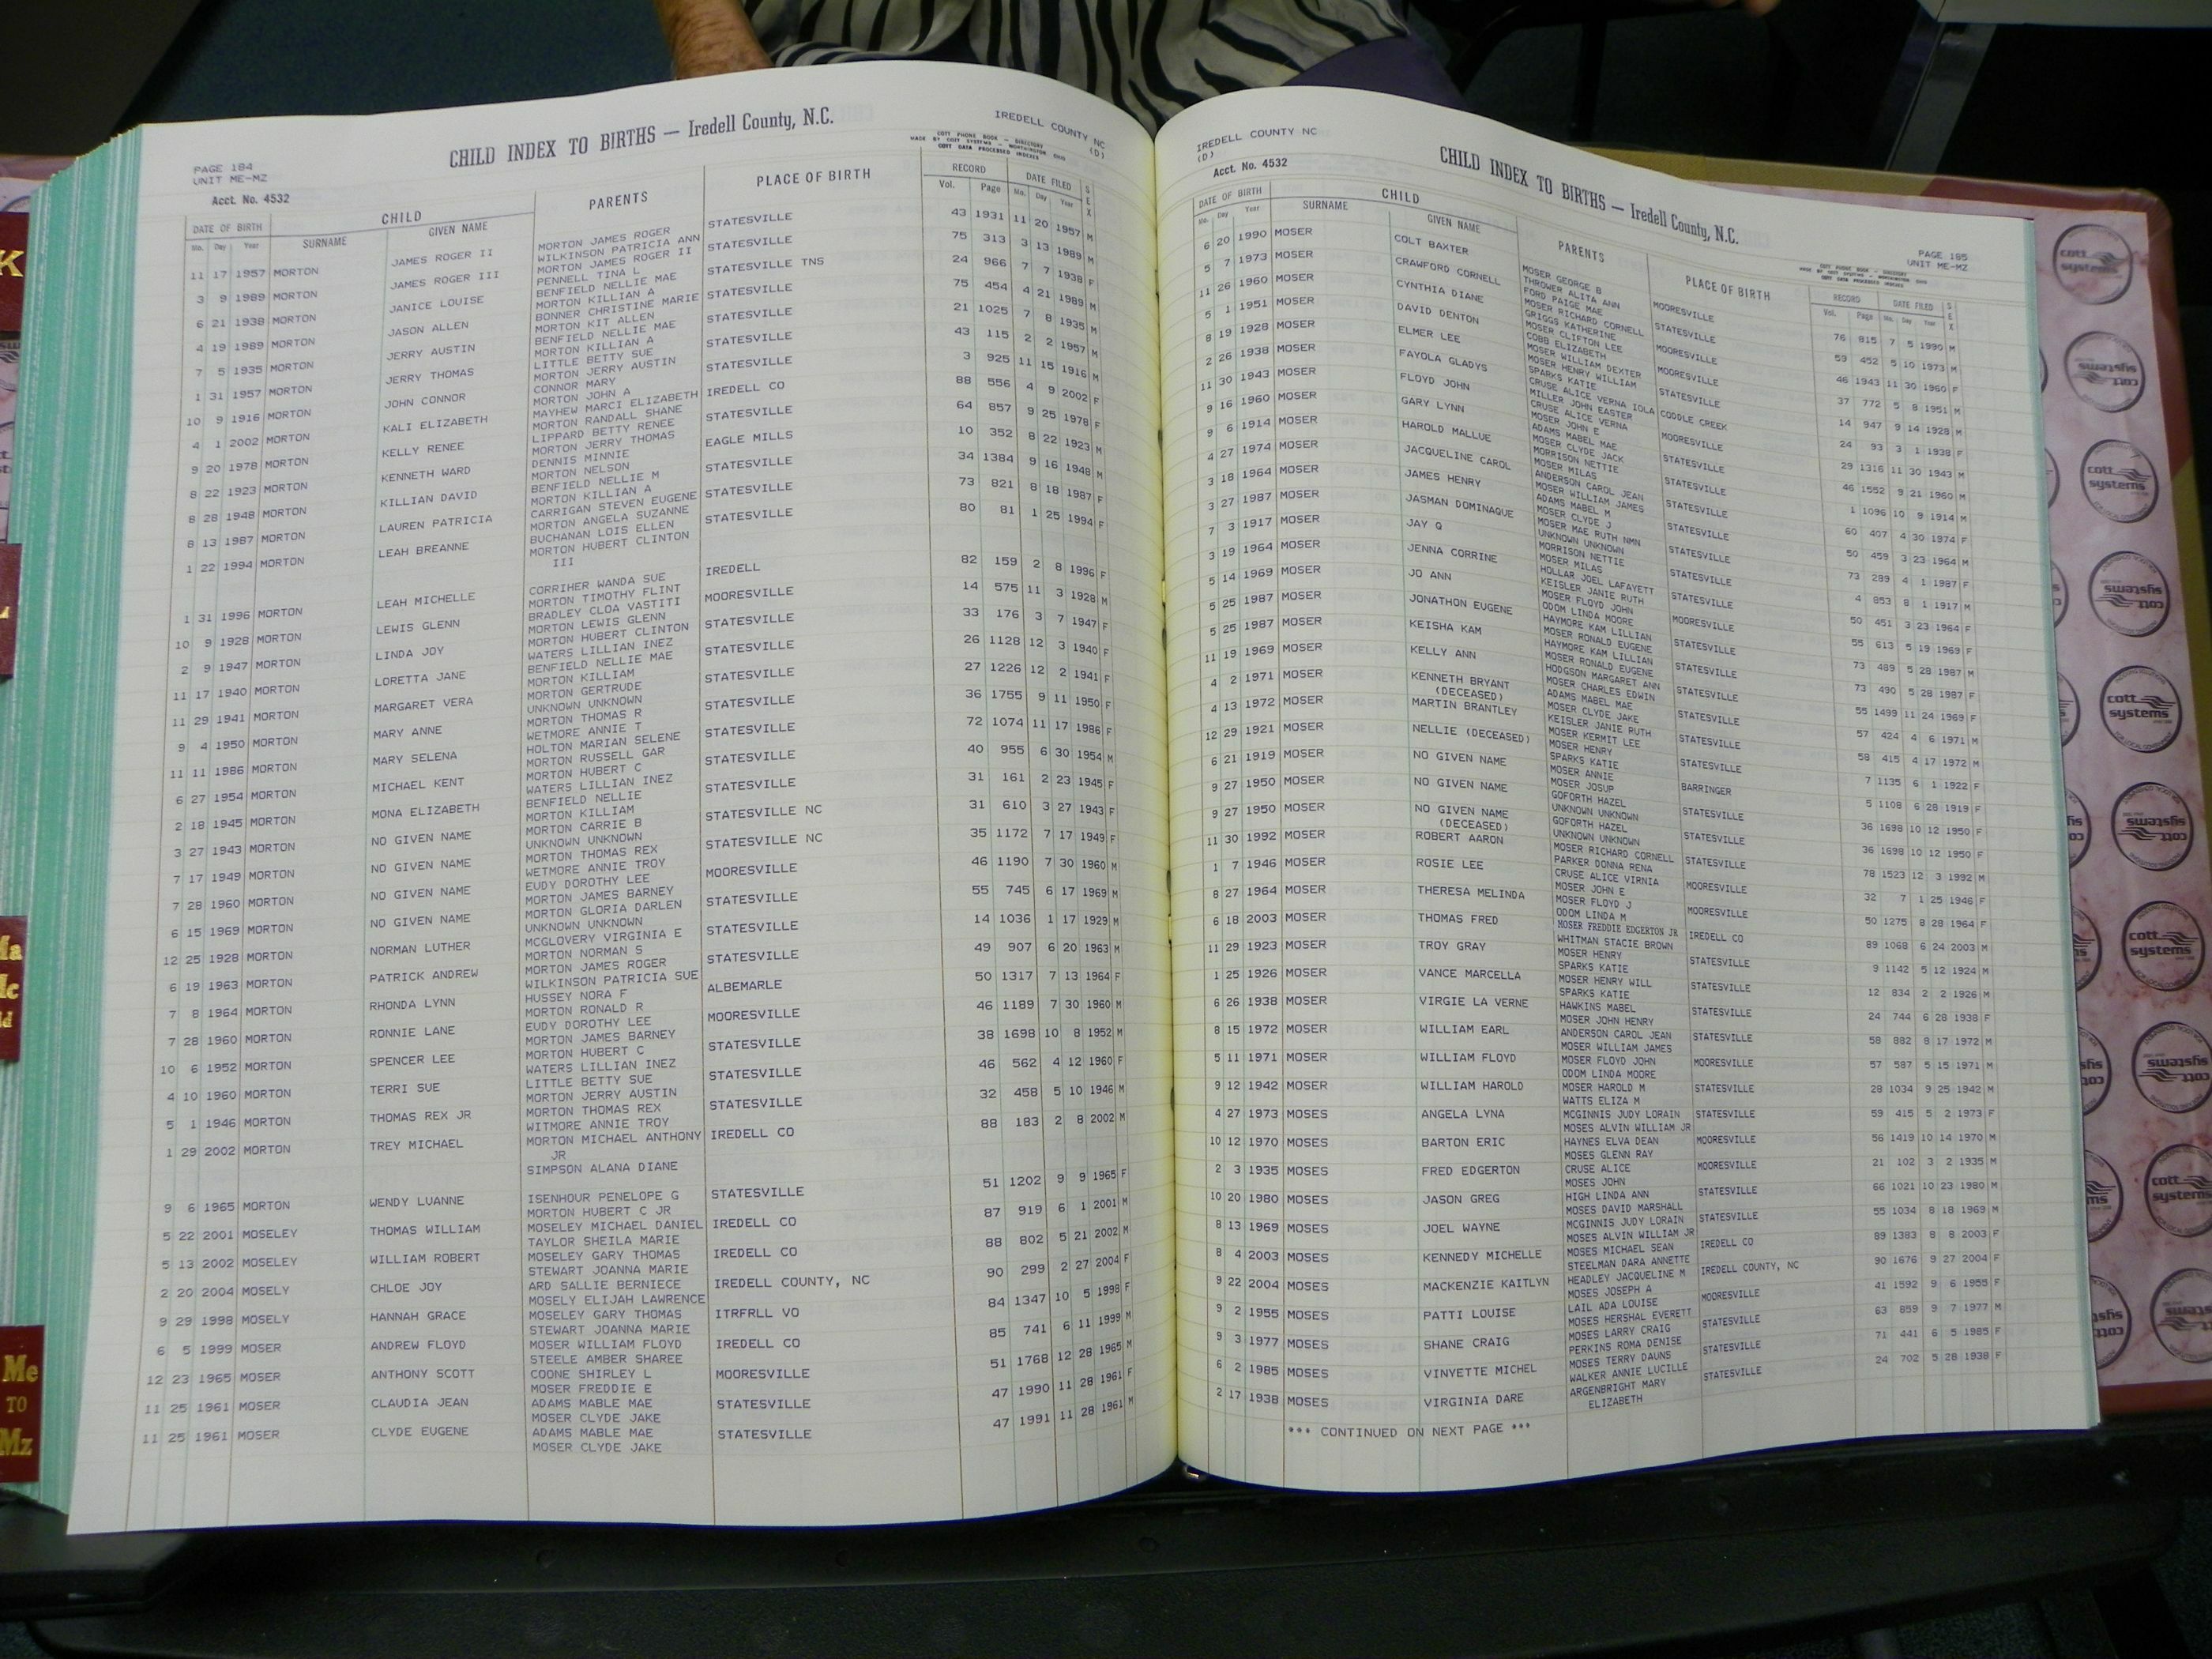 PAGE 184
UNIT ME-MZ
Acct. No. 4532
CHILD INDEX TO BIRTHS — Iredell County, N.C.
IREDELL COUNTY NC
(D)
COTT PHONE BOOK - DIRECTORY
MADE BY COTT SYSTEMS - WORTHINGTON OHIO
COTT DATA PROCESSED INDEXES
DATE OF BIRTH CHILD PARENTS PLACE OF BIRTH RECORD DATE FILED SEX
Mo. Day Year SURNAME GIVEN NAME Vol. Page Mo. Day Year
11 17 1957 MORTON JAMES ROGER II MORTON JAMES ROGER STATESVILLE 43 1931 11 20 1957 M
WILKINSON PATRICIA ANN
3 9 1989 MORTON JAMES ROGER III MORTON JAMES ROGER II STATESVILLE 75 313 3 13 1989 M
PENNELL TINA L
6 21 1938 MORTON JANICE LOUISE BENFIELD NELLIE MAE STATESVILLE TNS 24 966 7 7 1938 F
MORTON KILLIAN A
4 19 1989 MORTON JASON ALLEN BONNER CHRISTINE MARIE STATESVILLE 75 454 4 21 1989 M
MORTON KIT ALLEN
7 5 1935 MORTON JERRY AUSTIN BENFIELD NELLIE MAE STATESVILLE 21 1025 7 8 1935 M
MORTON KILLIAN A
1 31 1957 MORTON JERRY THOMAS LITTLE BETTY SUE STATESVILLE 43 115 2 2 1957 M
MORTON JERRY AUSTIN
10 9 1916 MORTON JOHN CONNOR CONNOR MARY STATESVILLE 3 925 11 15 1916 M
MORTON JOHN A
4 1 2002 MORTON KALI ELIZABETH MAYHEW MARCI ELIZABETH IREDELL CO 88 556 4 9 2002 F
MORTON RANDALL SHANE
9 20 1978 MORTON KELLY RENEE LIPPARD BETTY RENEE STATESVILLE 64 857 9 25 1978 F
MORTON JERRY THOMAS
8 22 1923 MORTON KENNETH WARD DENNIS MINNIE EAGLE MILLS 10 352 8 22 1923 M
MORTON NELSON
8 28 1948 MORTON KILLIAN DAVID BENFIELD NELLIE M STATESVILLE 34 1384 9 16 1948 M
MORTON KILLIAN A
8 13 1987 MORTON LAUREN PATRICIA CARRIGAN STEVEN EUGENE STATESVILLE 73 821 8 18 1987 F
MORTON ANGELA SUZANNE
1 22 1994 MORTON LEAH BREANNE BUCHANAN LOIS ELLEN STATESVILLE 80 81 1 25 1994 F
MORTON HUBERT CLINTON
III
1 31 1996 MORTON LEAH MICHELLE CORRIHER WANDA SUE IREDELL 82 159 2 8 1996 F
MORTON TIMOTHY FLINT
10 9 1928 MORTON LEWIS GLENN BRADLEY CLOA VASTITI MOORESVILLE 14 575 11 3 1928 M
MORTON LEWIS GLENN
2 9 1947 MORTON LINDA JOY MORTON HUBERT CLINTON STATESVILLE 33 176 3 7 1947 F
WATERS LILLIAN INEZ
11 17 1940 MORTON LORETTA JANE BENFIELD NELLIE MAE STATESVILLE 26 1128 12 3 1940 F
MORTON KILLIAM
11 29 1941 MORTON MARGARET VERA MORTON GERTRUDE STATESVILLE 27 1226 12 2 1941 F
UNKNOWN UNKNOWN
9 4 1950 MORTON MARY ANNE MORTON THOMAS R STATESVILLE 36 1755 9 11 1950 F
WETMORE ANNIE T
11 11 1986 MORTON MARY SELENA HOLTON MARIAN SELENE STATESVILLE 72 1074 11 17 1986 F
MORTON RUSSELL GAR
6 27 1954 MORTON MICHAEL KENT MORTON HUBERT C STATESVILLE 40 955 6 30 1954 M
WATERS LILLIAN INEZ
2 18 1945 MORTON MONA ELIZABETH BENFIELD NELLIE STATESVILLE 31 161 2 23 1945 F
MORTON KILLIAM
3 27 1943 MORTON NO GIVEN NAME MORTON CARRIE B STATESVILLE NC 31 610 3 27 1943 F
UNKNOWN UNKNOWN
7 17 1949 MORTON NO GIVEN NAME MORTON THOMAS REX STATESVILLE NC 35 1172 7 17 1949 F
WETMORE ANNIE TROY
7 28 1960 MORTON NO GIVEN NAME EUDY DOROTHY LEE MOORESVILLE 46 1190 7 30 1960 M
MORTON JAMES BARNEY
6 15 1969 MORTON NO GIVEN NAME MORTON GLORIA DARLEN STATESVILLE 55 745 6 17 1969 M
UNKNOWN UNKNOWN
12 25 1928 MORTON NORMAN LUTHER MCGLOVERY VIRGINIA E STATESVILLE 14 1036 1 17 1929 M
MORTON NORMAN S
6 19 1963 MORTON PATRICK ANDREW MORTON JAMES ROGER STATESVILLE 49 907 6 20 1963 M
WILKINSON PATRICIA SUE
7 8 1964 MORTON RHONDA LYNN HUSSEY NORA F ALBEMARLE 50 1317 7 13 1964 F
MORTON RONALD R
7 28 1960 MORTON RONNIE LANE EUDY DOROTHY LEE MOORESVILLE 46 1189 7 30 1960 M
MORTON JAMES BARNEY
10 6 1952 MORTON SPENCER LEE MORTON HUBERT C STATESVILLE 38 1698 10 8 1952 M
WATERS LILLIAN INEZ
4 10 1960 MORTON TERRI SUE LITTLE BETTY SUE STATESVILLE 46 562 4 12 1960 F
MORTON JERRY AUSTIN
5 1 1946 MORTON THOMAS REX JR MORTON THOMAS REX STATESVILLE 32 458 5 10 1946 M
WITMORE ANNIE TROY
1 29 2002 MORTON TREY MICHAEL MORTON MICHAEL ANTHONY IREDELL CO 88 183 2 8 2002 M
JR
SIMPSON ALANA DIANE
9 6 1965 MORTON WENDY LUANNE ISENHOUR PENELOPE G STATESVILLE 51 1202 9 9 1965 F
MORTON HUBERT C JR
5 22 2001 MOSELEY THOMAS WILLIAM MOSELEY MICHAEL DANIEL IREDELL CO 87 919 6 1 2001 M
TAYLOR SHEILA MARIE
5 13 2002 MOSELEY WILLIAM ROBERT MOSELEY GARY THOMAS IREDELL CO 88 802 5 21 2002 M
STEWART JOANNA MARIE
2 20 2004 MOSELY CHLOE JOY ARD SALLIE BERNIECE IREDELL COUNTY, NC 90 299 2 27 2004 F
MOSELY ELIJAH LAWRENCE
9 29 1998 MOSELY HANNAH GRACE MOSELEY GARY THOMAS ITRFRLL VO 84 1347 10 5 1998 F
STEWART JOANNA MARIE
6 5 1999 MOSER ANDREW FLOYD MOSER WILLIAM FLOYD IREDELL CO 85 741 6 11 1999 M
STEELE AMBER SHAREE
12 23 1965 MOSER ANTHONY SCOTT COONE SHIRLEY L MOORESVILLE 51 1768 12 28 1965 M
MOSER FREDDIE E
11 25 1961 MOSER CLAUDIA JEAN ADAMS MABLE MAE STATESVILLE 47 1990 11 28 1961 F
MOSER CLYDE JAKE
11 25 1961 MOSER CLYDE EUGENE ADAMS MABLE MAE STATESVILLE 47 1991 11 28 1961 M
MOSER CLYDE JAKE
IREDELL COUNTY NC
(D)
Acct. No. 4532
CHILD INDEX TO BIRTHS — Iredell County, N.C.
PAGE 185
UNIT ME-MZ
COTT PHONE BOOK - DIRECTORY
MADE BY COTT SYSTEMS - WORTHINGTON OHIO
COTT DATA PROCESSED INDEXES
DATE OF BIRTH CHILD PARENTS PLACE OF BIRTH RECORD DATE FILED SEX
Mo. Day Year SURNAME GIVEN NAME Vol. Page Mo. Day Year
6 20 1990 MOSER COLT BAXTER MOSER GEORGE B MOORESVILLE 76 815 7 5 1990 M
THROWER ALITA ANN
5 7 1973 MOSER CRAWFORD CORNELL FORD PAIGE MAE STATESVILLE 59 452 5 10 1973 M
MOSER RICHARD CORNELL
11 26 1960 MOSER CYNTHIA DIANE GRIGGS KATHERINE MOORESVILLE 46 1943 11 30 1960 F
MOSER CLIFTON LEE
5 1 1951 MOSER DAVID DENTON COBB ELIZABETH STATESVILLE 37 772 5 8 1951 M
MOSER WILLIAM DEXTER
8 19 1928 MOSER ELMER LEE MOSER HENRY WILLIAM CODDLE CREEK 14 947 9 14 1928 M
SPARKS KATIE
2 26 1938 MOSER FAYOLA GLADYS CRUSE ALICE VERNA IOLA MOORESVILLE 24 93 3 1 1938 F
MILLER JOHN EASTER
11 30 1943 MOSER FLOYD JOHN CRUSE ALICE VERNA STATESVILLE 29 1316 11 30 1943 M
MOSER JOHN E
9 16 1960 MOSER GARY LYNN ADAMS MABEL MAE STATESVILLE 46 1552 9 21 1960 M
MOSER CLYDE JACK
9 6 1914 MOSER HAROLD MALLUE MORRISON NETTIE STATESVILLE 1 1096 10 9 1914 M
MOSER MILAS
4 27 1974 MOSER JACQUELINE CAROL ANDERSON CAROL JEAN STATESVILLE 60 407 4 30 1974 F
MOSER WILLIAM JAMES
3 18 1964 MOSER JAMES HENRY ADAMS MABEL M STATESVILLE 50 459 3 23 1964 M
MOSER CLYDE J
3 27 1987 MOSER JASMAN DOMINAQUE MOSER MAE RUTH NMN STATESVILLE 73 289 4 1 1987 F
UNKNOWN UNKNOWN
7 3 1917 MOSER JAY Q MORRISON NETTIE STATESVILLE 4 853 8 1 1917 M
MOSER MILAS
3 19 1964 MOSER JENNA CORRINE HOLLAR JOEL LAFAYETT MOORESVILLE 50 451 3 23 1964 F
KEISLER JANIE RUTH
5 14 1969 MOSER JO ANN MOSER FLOYD JOHN STATESVILLE 55 613 5 19 1969 F
ODOM LINDA MOORE
5 25 1987 MOSER JONATHON EUGENE HAYMORE KAM LILLIAN STATESVILLE 73 489 5 28 1987 M
MOSER RONALD EUGENE
5 25 1987 MOSER KEISHA KAM HAYMORE KAM LILLIAN STATESVILLE 73 490 5 28 1987 F
MOSER RONALD EUGENE
11 19 1969 MOSER KELLY ANN HODGSON MARGARET ANN STATESVILLE 55 1499 11 24 1969 F
MOSER CHARLES EDWIN
4 2 1971 MOSER KENNETH BRYANT ADAMS MABEL MAE STATESVILLE 57 424 4 6 1971 M
(DECEASED) MOSER CLYDE JAKE
4 13 1972 MOSER MARTIN BRANTLEY KEISLER JANIE RUTH STATESVILLE 58 415 4 17 1972 M
MOSER KERMIT LEE
12 29 1921 MOSER NELLIE (DECEASED) MOSER HENRY BARRINGER 7 1135 6 1 1922 F
SPARKS KATIE
6 21 1919 MOSER NO GIVEN NAME MOSER ANNIE STATESVILLE 5 1108 6 28 1919 F
MOSER JOSUP
9 27 1950 MOSER NO GIVEN NAME GOFORTH HAZEL STATESVILLE 36 1698 10 12 1950 F
UNKNOWN UNKNOWN
9 27 1950 MOSER NO GIVEN NAME GOFORTH HAZEL STATESVILLE 36 1698 10 12 1950 F
(DECEASED) UNKNOWN UNKNOWN
11 30 1992 MOSER ROBERT AARON MOSER RICHARD CORNELL MOORESVILLE 78 1523 12 3 1992 M
PARKER DONNA RENA
1 7 1946 MOSER ROSIE LEE CRUSE ALICE VIRNIA MOORESVILLE 32 7 1 25 1946 F
MOSER JOHN E
8 27 1964 MOSER THERESA MELINDA MOSER FLOYD J IREDELL CO 50 1275 8 28 1964 F
ODOM LINDA M
6 18 2003 MOSER THOMAS FRED MOSER FREDDIE EDGERTON JR STATESVILLE 89 1068 6 24 2003 M
WHITMAN STACIE BROWN
11 29 1923 MOSER TROY GRAY MOSER HENRY STATESVILLE 9 1142 5 12 1924 M
SPARKS KATIE
1 25 1926 MOSER VANCE MARCELLA MOSER HENRY WILL STATESVILLE 12 834 2 2 1926 M
SPARKS KATIE
6 26 1938 MOSER VIRGIE LA VERNE HAWKINS MABEL STATESVILLE 24 744 6 28 1938 F
MOSER JOHN HENRY
8 15 1972 MOSER WILLIAM EARL ANDERSON CAROL JEAN STATESVILLE 58 882 8 17 1972 M
MOSER WILLIAM JAMES
5 11 1971 MOSER WILLIAM FLOYD MOSER FLOYD JOHN MOORESVILLE 57 587 5 15 1971 M
ODOM LINDA MOORE
9 12 1942 MOSER WILLIAM HAROLD MOSER HAROLD M STATESVILLE 28 1034 9 25 1942 M
WATTS ELIZA M
4 27 1973 MOSES ANGELA LYNA MCGINNIS JUDY LORAIN STATESVILLE 59 415 5 2 1973 F
MOSES ALVIN WILLIAM JR
10 12 1970 MOSES BARTON ERIC HAYNES ELVA DEAN MOORESVILLE 56 1419 10 14 1970 M
MOSES GLENN RAY
2 3 1935 MOSES FRED EDGERTON CRUSE ALICE MOORESVILLE 21 102 3 2 1935 M
MOSES JOHN
10 20 1980 MOSES JASON GREG HIGH LINDA ANN STATESVILLE 66 1021 10 23 1980 M
MOSES DAVID MARSHALL
8 13 1969 MOSES JOEL WAYNE MCGINNIS JUDY LORAIN STATESVILLE 55 1034 8 18 1969 M
MOSES ALVIN WILLIAM JR
8 4 2003 MOSES KENNEDY MICHELLE MOSES MICHAEL SEAN IREDELL CO 89 1383 8 8 2003 F
STEELMAN DARA ANNETTE
9 22 2004 MOSES MACKENZIE KAITLYN HEADLEY JACQUELINE M IREDELL COUNTY, NC 90 1676 9 27 2004 F
MOSES JOSEPH A
9 2 1955 MOSES PATTI LOUISE LAIL ADA LOUISE MOORESVILLE 41 1592 9 6 1955 F
MOSES HERSHAL EVERETT
9 3 1977 MOSES SHANE CRAIG MOSES LARRY CRAIG STATESVILLE 63 859 9 7 1977 M
PERKINS ROMA DENISE
6 2 1985 MOSES VINYETTE MICHEL MOSES TERRY DAUNS STATESVILLE 71 441 6 5 1985 F
WALKER ANNIE LUCILLE
2 17 1938 MOSES VIRGINIA DARE ARGENBRIGHT MARY STATESVILLE 24 702 5 28 1938 F
ELIZABETH
*** CONTINUED ON NEXT PAGE ***
K
L
Me
TO
Mz
cott systems